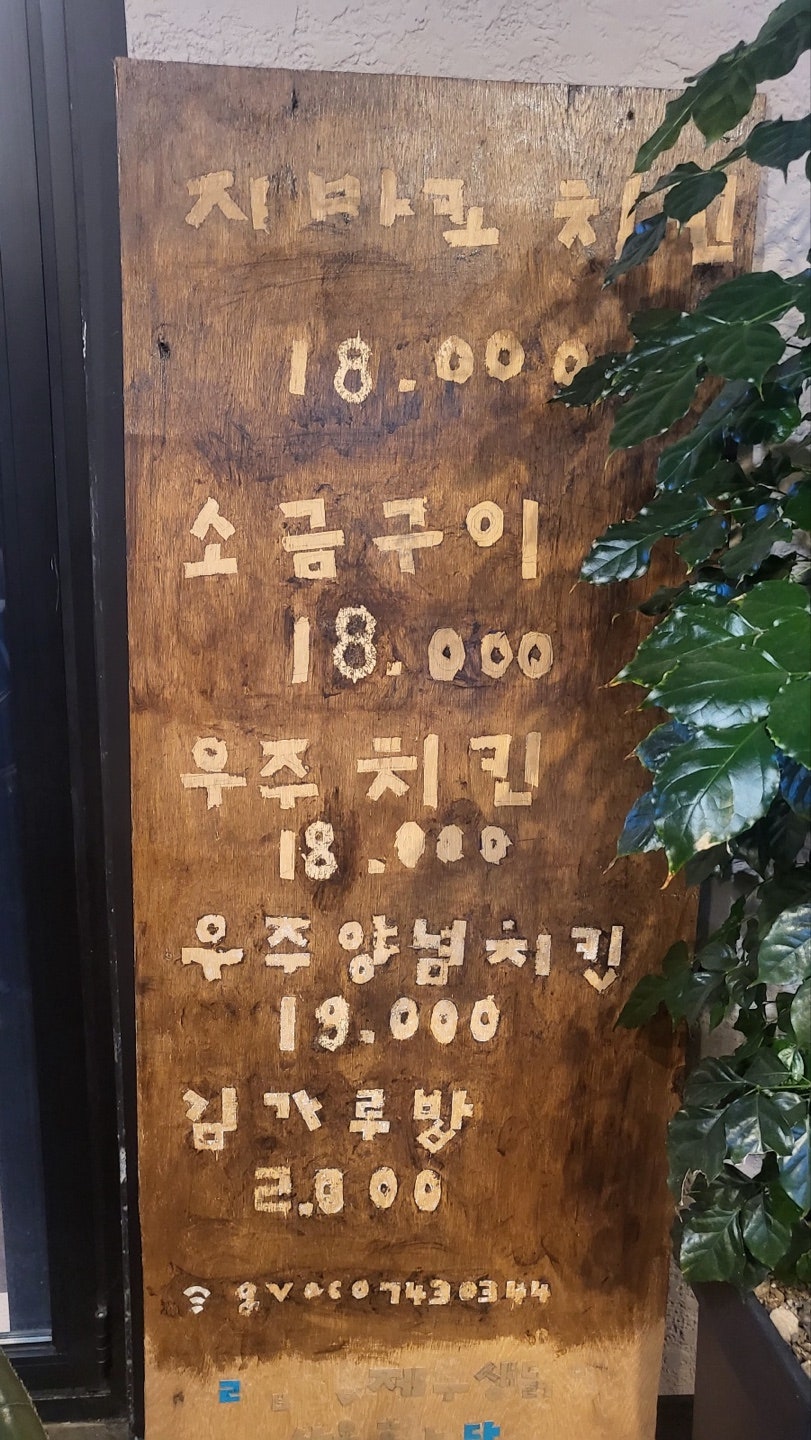 지바코 치킨
18.000
소금구이
18.000
우주치킨
18.000
우주양념치킨
19.000
김가루밥
2.000
gvaco7430344